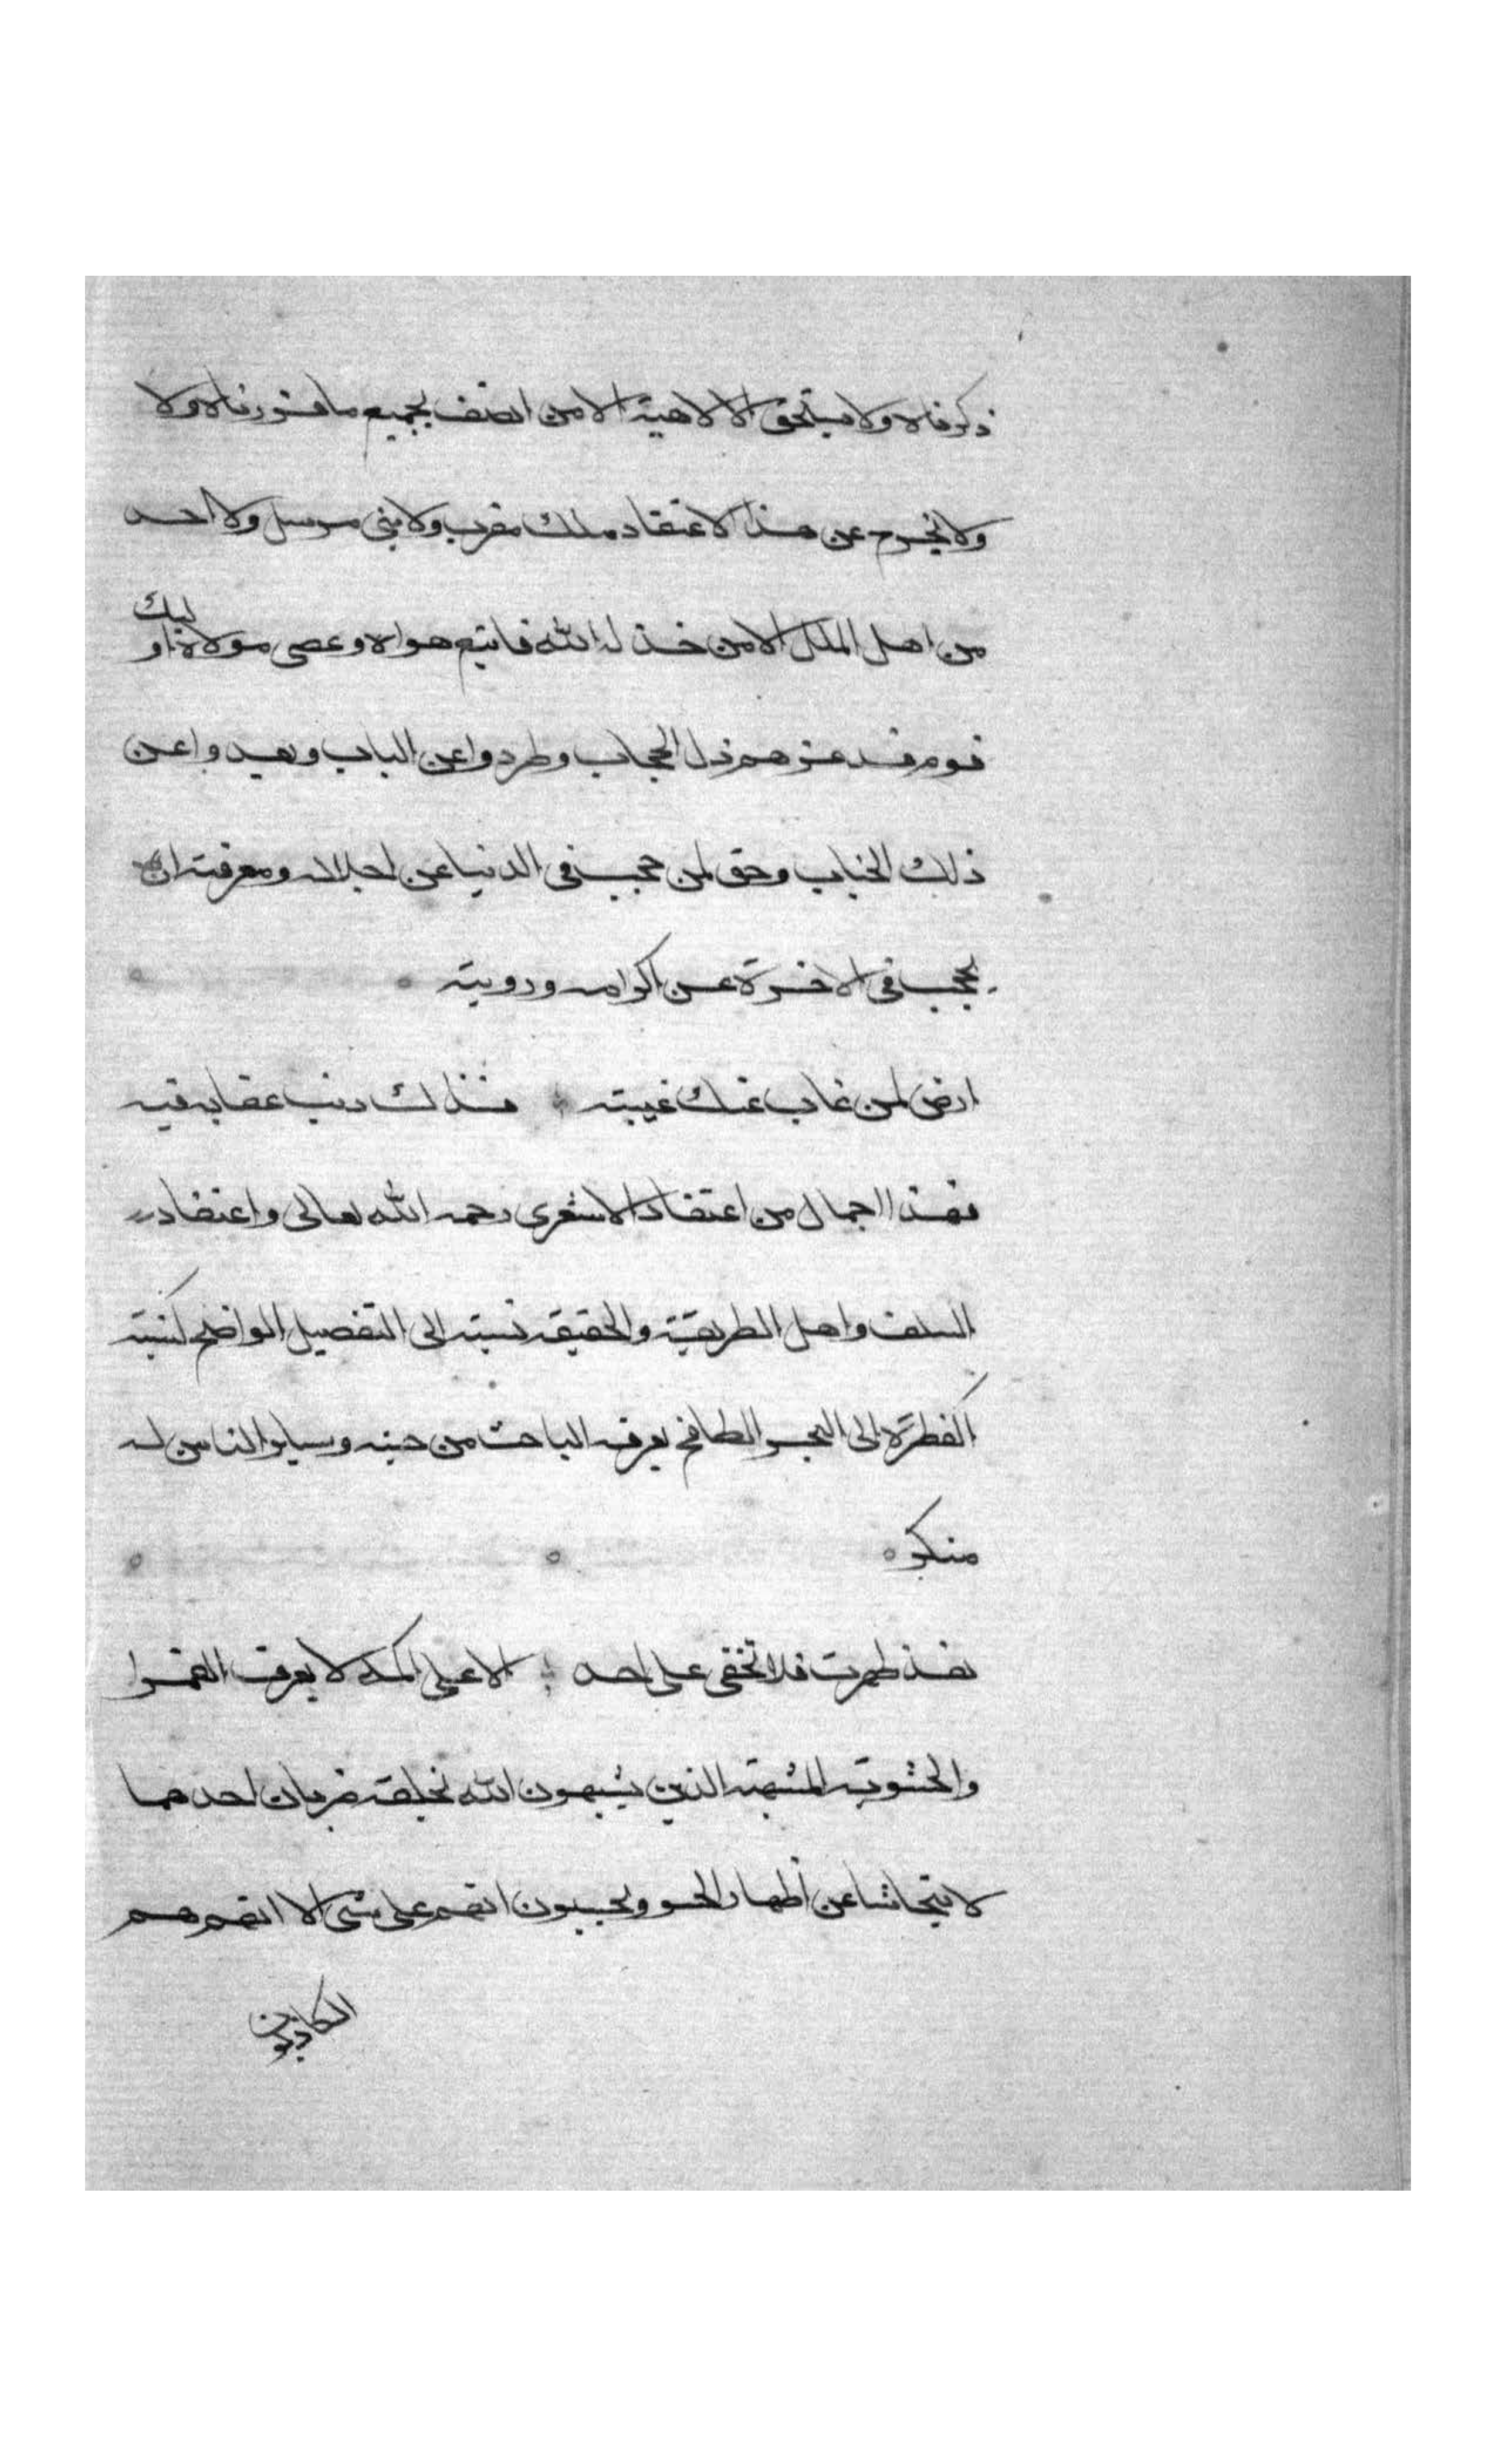 ذكرناه ولا يستحق الالاهية الا من اتصف بجميع ما قررناه ولا
ولا يخرج عن هذا الاعتقاد ملك مقرب ولا نبي مرسل ولا احد
من اهل الملل الا من خذله الله فاتبع هواه وعصى مولاه اوليك
قوم قد غرهم ذل الحجاب وطردوا عن الباب وبعدوا عن
ذلك الجناب وحق لمن حجب في الدنيا عن اجلاله ومعرفته ان
يحجب في الاخرة عن اكرامه ورويته
ارض لمن غاب عنك غيبته فذلك ذنب عقابه فيه
فهذا اجمال من اعتقاد الاشعري رحمه الله تعالى واعتقاد
السلف واهل الطريقة والحقيقة نسبته الى التفصيل الواضح كنسبة
القطرة الى البحر الطافح يعرفه الباحث من جنسه وساير الناس له
منكر
لقد ظهرت فلا تخفى على احد الا على اكمه لا يعرف القمرا
والحشوية المشبهة الذين يشبهون الله بخلقه ضربان احدهما
لا يتحاشا عن اظهار الحشو ويحسبون انهم على شي الا انهم هم
الكاذبون